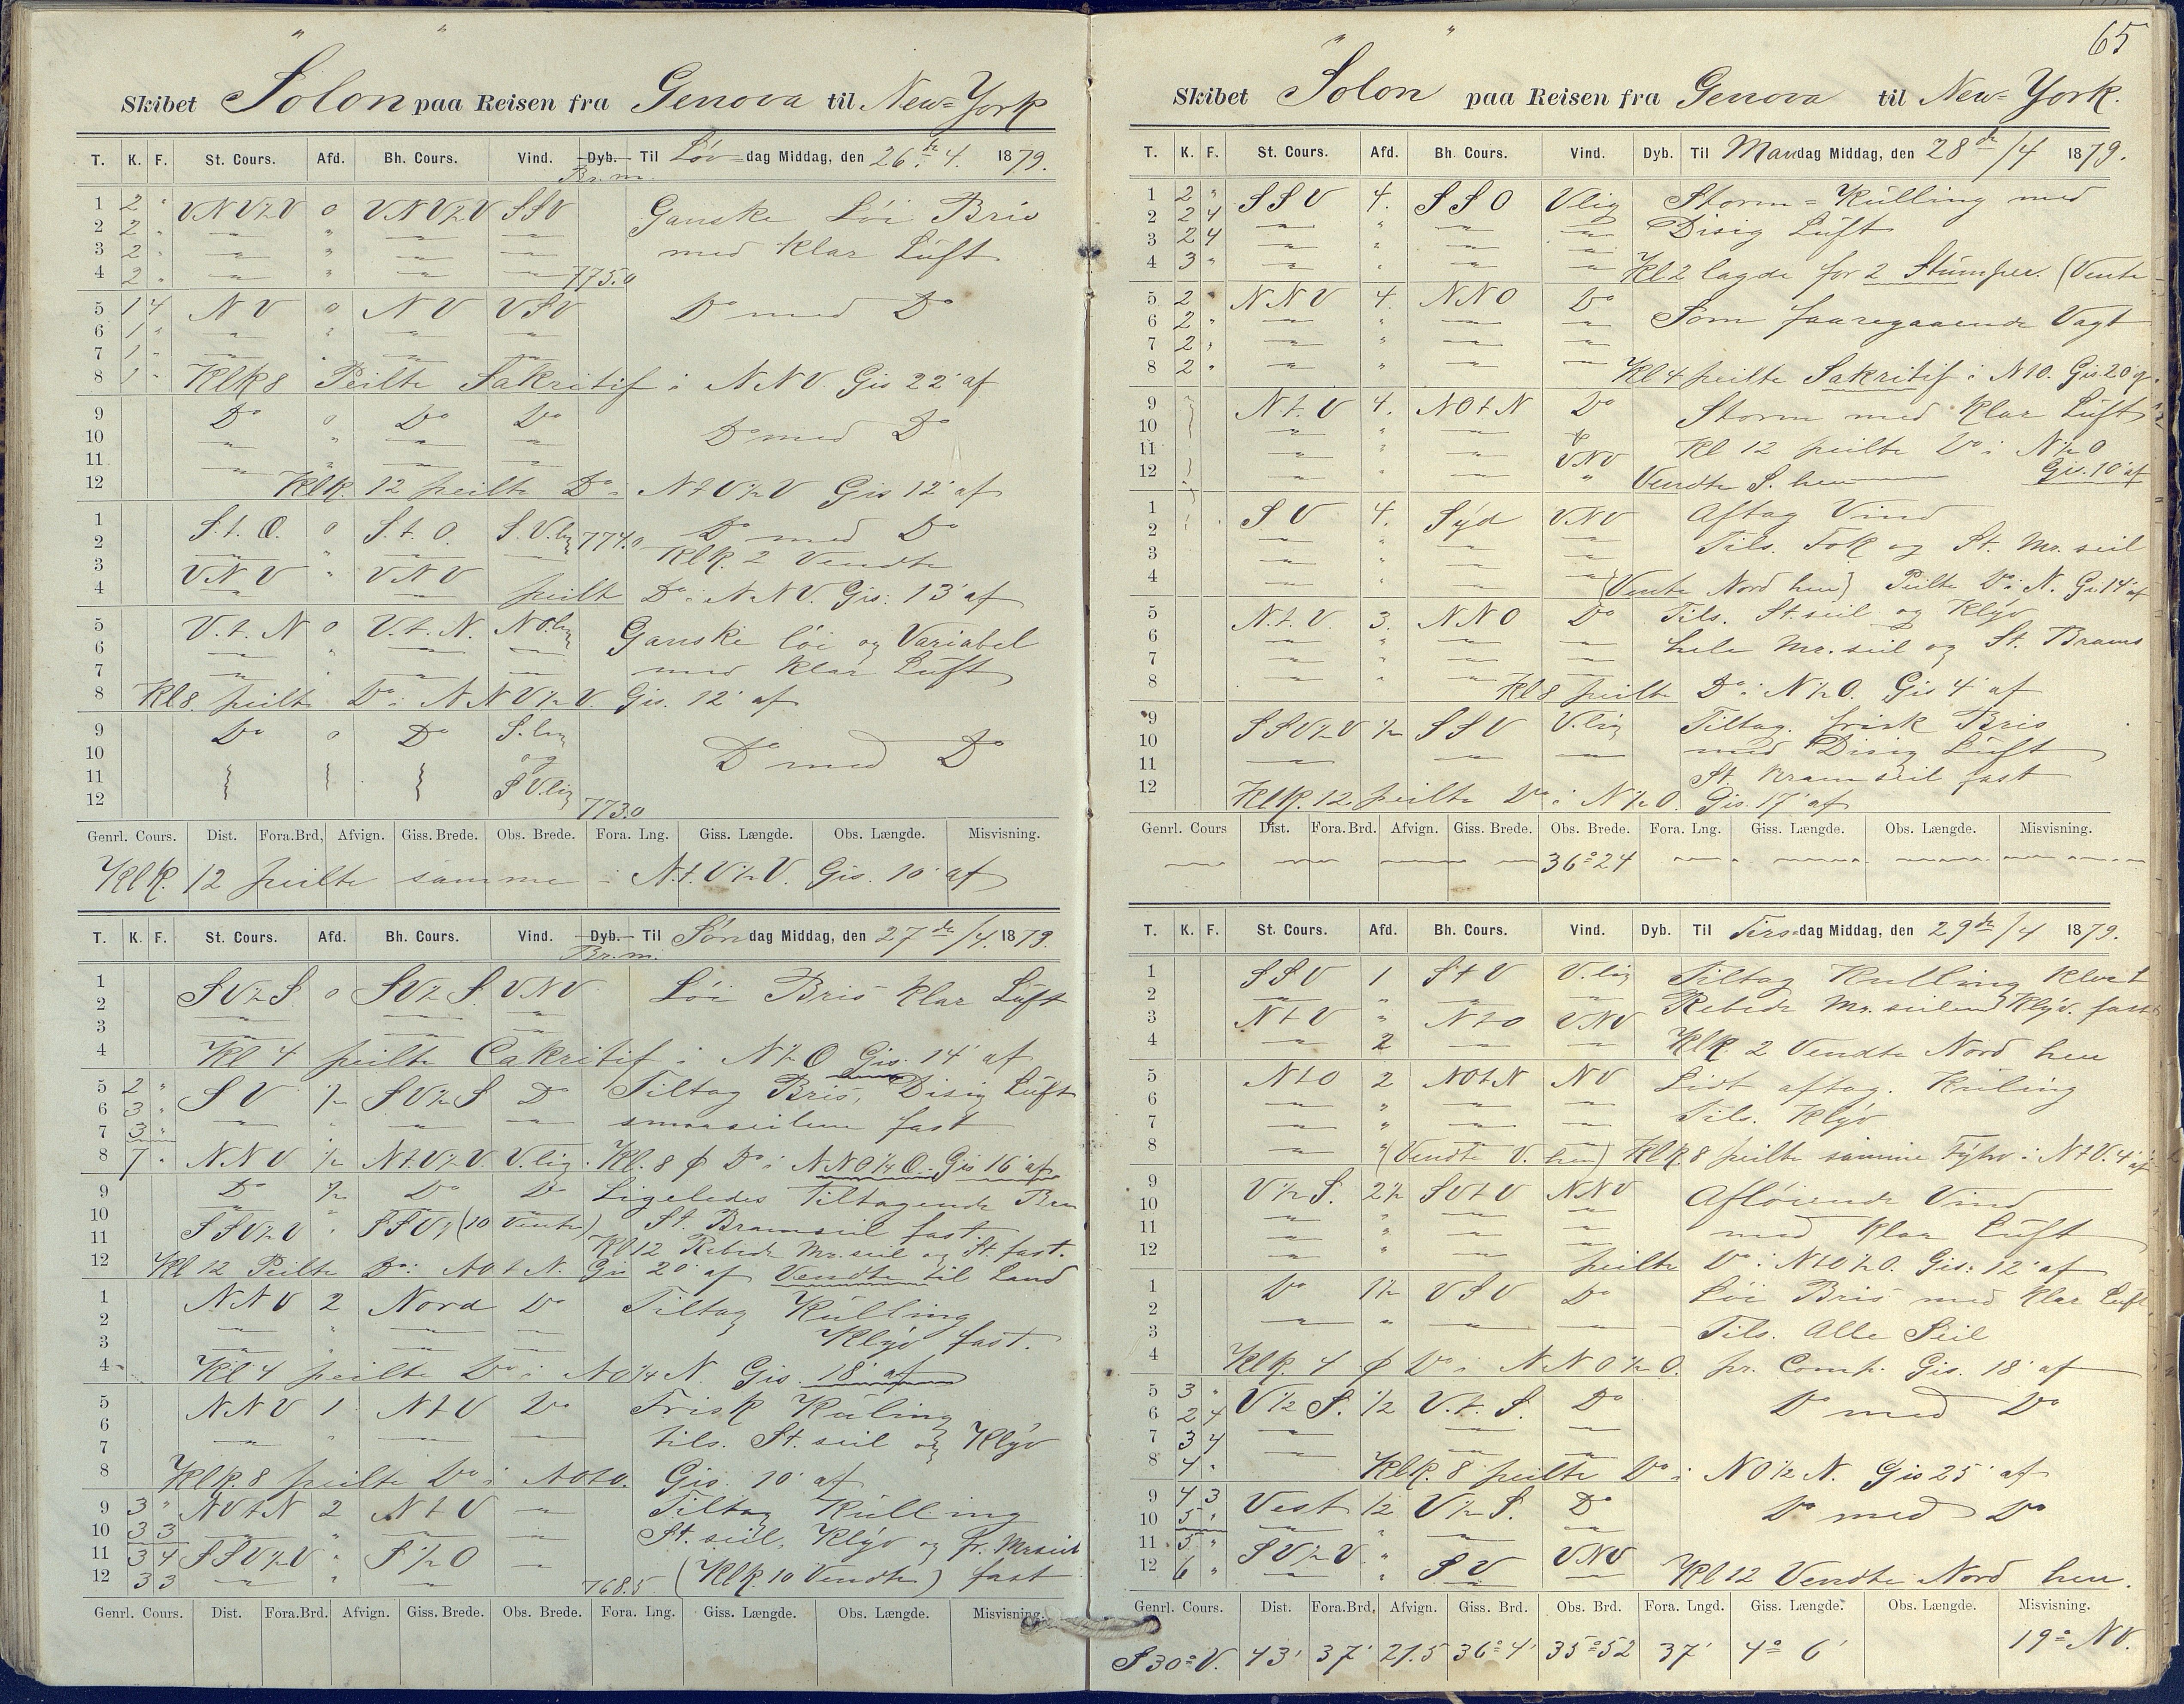 Skibet Solon paa Reisen fra Genova til New=York
T. K. F. St. Cours. Afd. Bh. Cours. Vind. Dyb. Til Løv=dag Middag, den 26de 4. 1879.
Br.m.
1 2 " VNV½V 0 VNV½V SSV Ganske Løi Bris
2 2 "
3 2 " med klar Luft
4 2 " 775.0
5 1 4 NV 0 NV VSV Do med Do
6 1 "
7 1 "
8 1 " Klk 8 Peilte Sakritif i NNV. Gis 22' af
9 Do 0 Do Do
10 Do med Do
11
12 Klk. 12 peilte Do i NtV½V Gis 12' af
1 S.t.O. 0 S.t.O. S.V.lig 774.0 Do med Do
2 Klk. 2 Vendte
3 VNV " VNV
4 peilt Do i NNV. Gis: 13' af
5 V.t.N 0 V.t.N. NO.lig Ganske løi og Variabel
6
7 med klar Luft
8 Kl 8. peilte Do i NNV½V. Gis. 12' af
9 Do 0 Do S.lig
10 og Do med Do
11 SV.lig
12 773.0
Genrl. Cours. Dist. Fora.Brd, Afvign. Giss. Brede. Obs. Brede. Fora. Lng. Giss. Længde. Obs. Længde. Misvisning.
Klk. 12 peilte samme i N.t.V½V. Gis. 10' af
T. K. F. St. Cours. Afd. Bh. Cours. Vind. Dyb. Til Søndag Middag, den 27de/4. 1879.
Br.m.
1 SV½S 0 SV½S. VNV Løi Bris klar Luft
2
3
4 Kl 4 peilte Cakritif i N½O Gis. 14' af
5 2 " SV ½ SV½S Do Tiltag Bris, Disig Luft
6 3 "
7 3 " smaaseilene fast
8 7 " NNV ½ N.t.V½V. V.lig. Kl. 8 ϕ Do i NNO¼O. Gis 16' af
9 Do ½ Do Do Ligeledes Tiltagende Bris
10 St. Bramseil fast
11 SSV½V " SSV½ (10 Vente)
Kl 12 Rebede Mr. seil og St. fast.
12 Kl 12 Peilte Do: NOtN. Gis 20' af Vendte til Land
1 NNV 2 Nord Do Tiltag Kulling
2
3 Klyv fast.
4 Kl 4 peilte Do i NO¼N. Gis. 18' af
5 NNV 1 NtV Do Frisk Kuling
6 tils. St. seil og Klyv
7
8 Klk. 8 peilte Do i NOtO. Gis. 10' af
9 3 " NVtN 2 NtV Tiltag Kulling
10 3 3 St. seil, Klyv og Fr. Mrseil
11 3 4 SSV½V " S½O
12 3 3 768.5 (Klk. 10 Vendte) fast
Genrl. Cours. Dist. Fora.Brd. Afvign. Giss. Brede. Obs. Brede. Fora. Lng. Giss. Længde. Obs. Længde. Misvisning.
65
Skibet Solon paa Reisen fra Genova til New=York.
T. K. F. St. Cours. Afd. Bh. Cours. Vind. Dyb. Til Mandag Middag, den 28de/4 1879.
1 2 " SSV 4. SSO Vlig Storm=Kulling med
2 2 4 Disig Luft
3 2 4
4 3 " Kl 2 lagde for 2 Stumper. (Vente
5 2 " NNV 4. NNO Do Som foaregaaende Vagt
6 2 "
7 2 "
8 2 " Kl 4 peilte Sakritif i NtO. Gis. 20'
9 N.t.V 4. NOtN Do Storm med klar Luft
10
11 VNV Kl 12 peilte Do i N½O
12 Vendte S. hen Gis. 10' af
1 SV 4. Syd VNV Aftag Vind
2 Tils. Fok og St. Mr. seil
3
4 (Vente Nord hen) Peilte Do i N. Gis 14' af
5 N.t.V. 3. NNO Do Tils. St. seil og Klyv
6 hele Mr. seil og St. Brams
7
8 Kl 8 peilte Do i N½O. Gis 4' af
9 SSV½V ½ SSV V.lig Tiltag. frisk Bris
10 med Disig Luft
11 St. Bramseil fast
12 Klk. 12 peilte Do i N½O. Gis. 17' af
Genrl. Cours Dist. Fora.Brd. Afvign. Giss. Brede. Obs. Brede. Fora. Lng. Giss. Længde. Obs. Længde. Misvisning.
36°24
T. K. F. St. Cours. Afd. Bh. Cours. Vind. Dyb. Til Tirs=dag Middag, den 29de/4 1879.
1 SSV 1 StV V.lig Tiltag Kulling
2 Rebede Mr. seilene Klyv. fast
3 NtV " NtO VNV
4 2 Klk 2 Vendte Nord hen
5 NtO 2 NOtN NV Lidt aftag. Kuling
6
7 Tils. Klyv
8 (Vendte V. hen) Klk 8 peilte samme Fyhr i NtV. 4' af
9 V½S. 2½ SVtV NNV Afløiende Vind
10
11 med klar Luft
12 peilte Do i NtO½O. Gis: 12' af
1 Do 1½ VSV Do Løi Bris med klar Luft
2
3 Tils. Alle Seil
4 Klk. 4 ϕ Do i NNO½O. pr. Comp. Gis. 18' af
5 3 " V½S. ½ V.t.S. Do Do med Do
6 2 4
7 3 4
8 4 " Klk. 8 peilte Do i NO½N. Gis 25' af
9 4 3 Vest ½ V½S. Do Do med Do
10 5 "
11 5 " SV½V " SV VNV
12 6 " Kl 12 Vendte Nord hen.
Genrl. Cours. Dist. Fora.Brd, Afvign. Giss. Brd. Obs. Brd. Fora. Lngd. Giss. Længde. Obs. Længde. Misvisning.
S30°V. 43' 37' 21.5 36°4' 35°52 37' 4° 6' 19° NV.